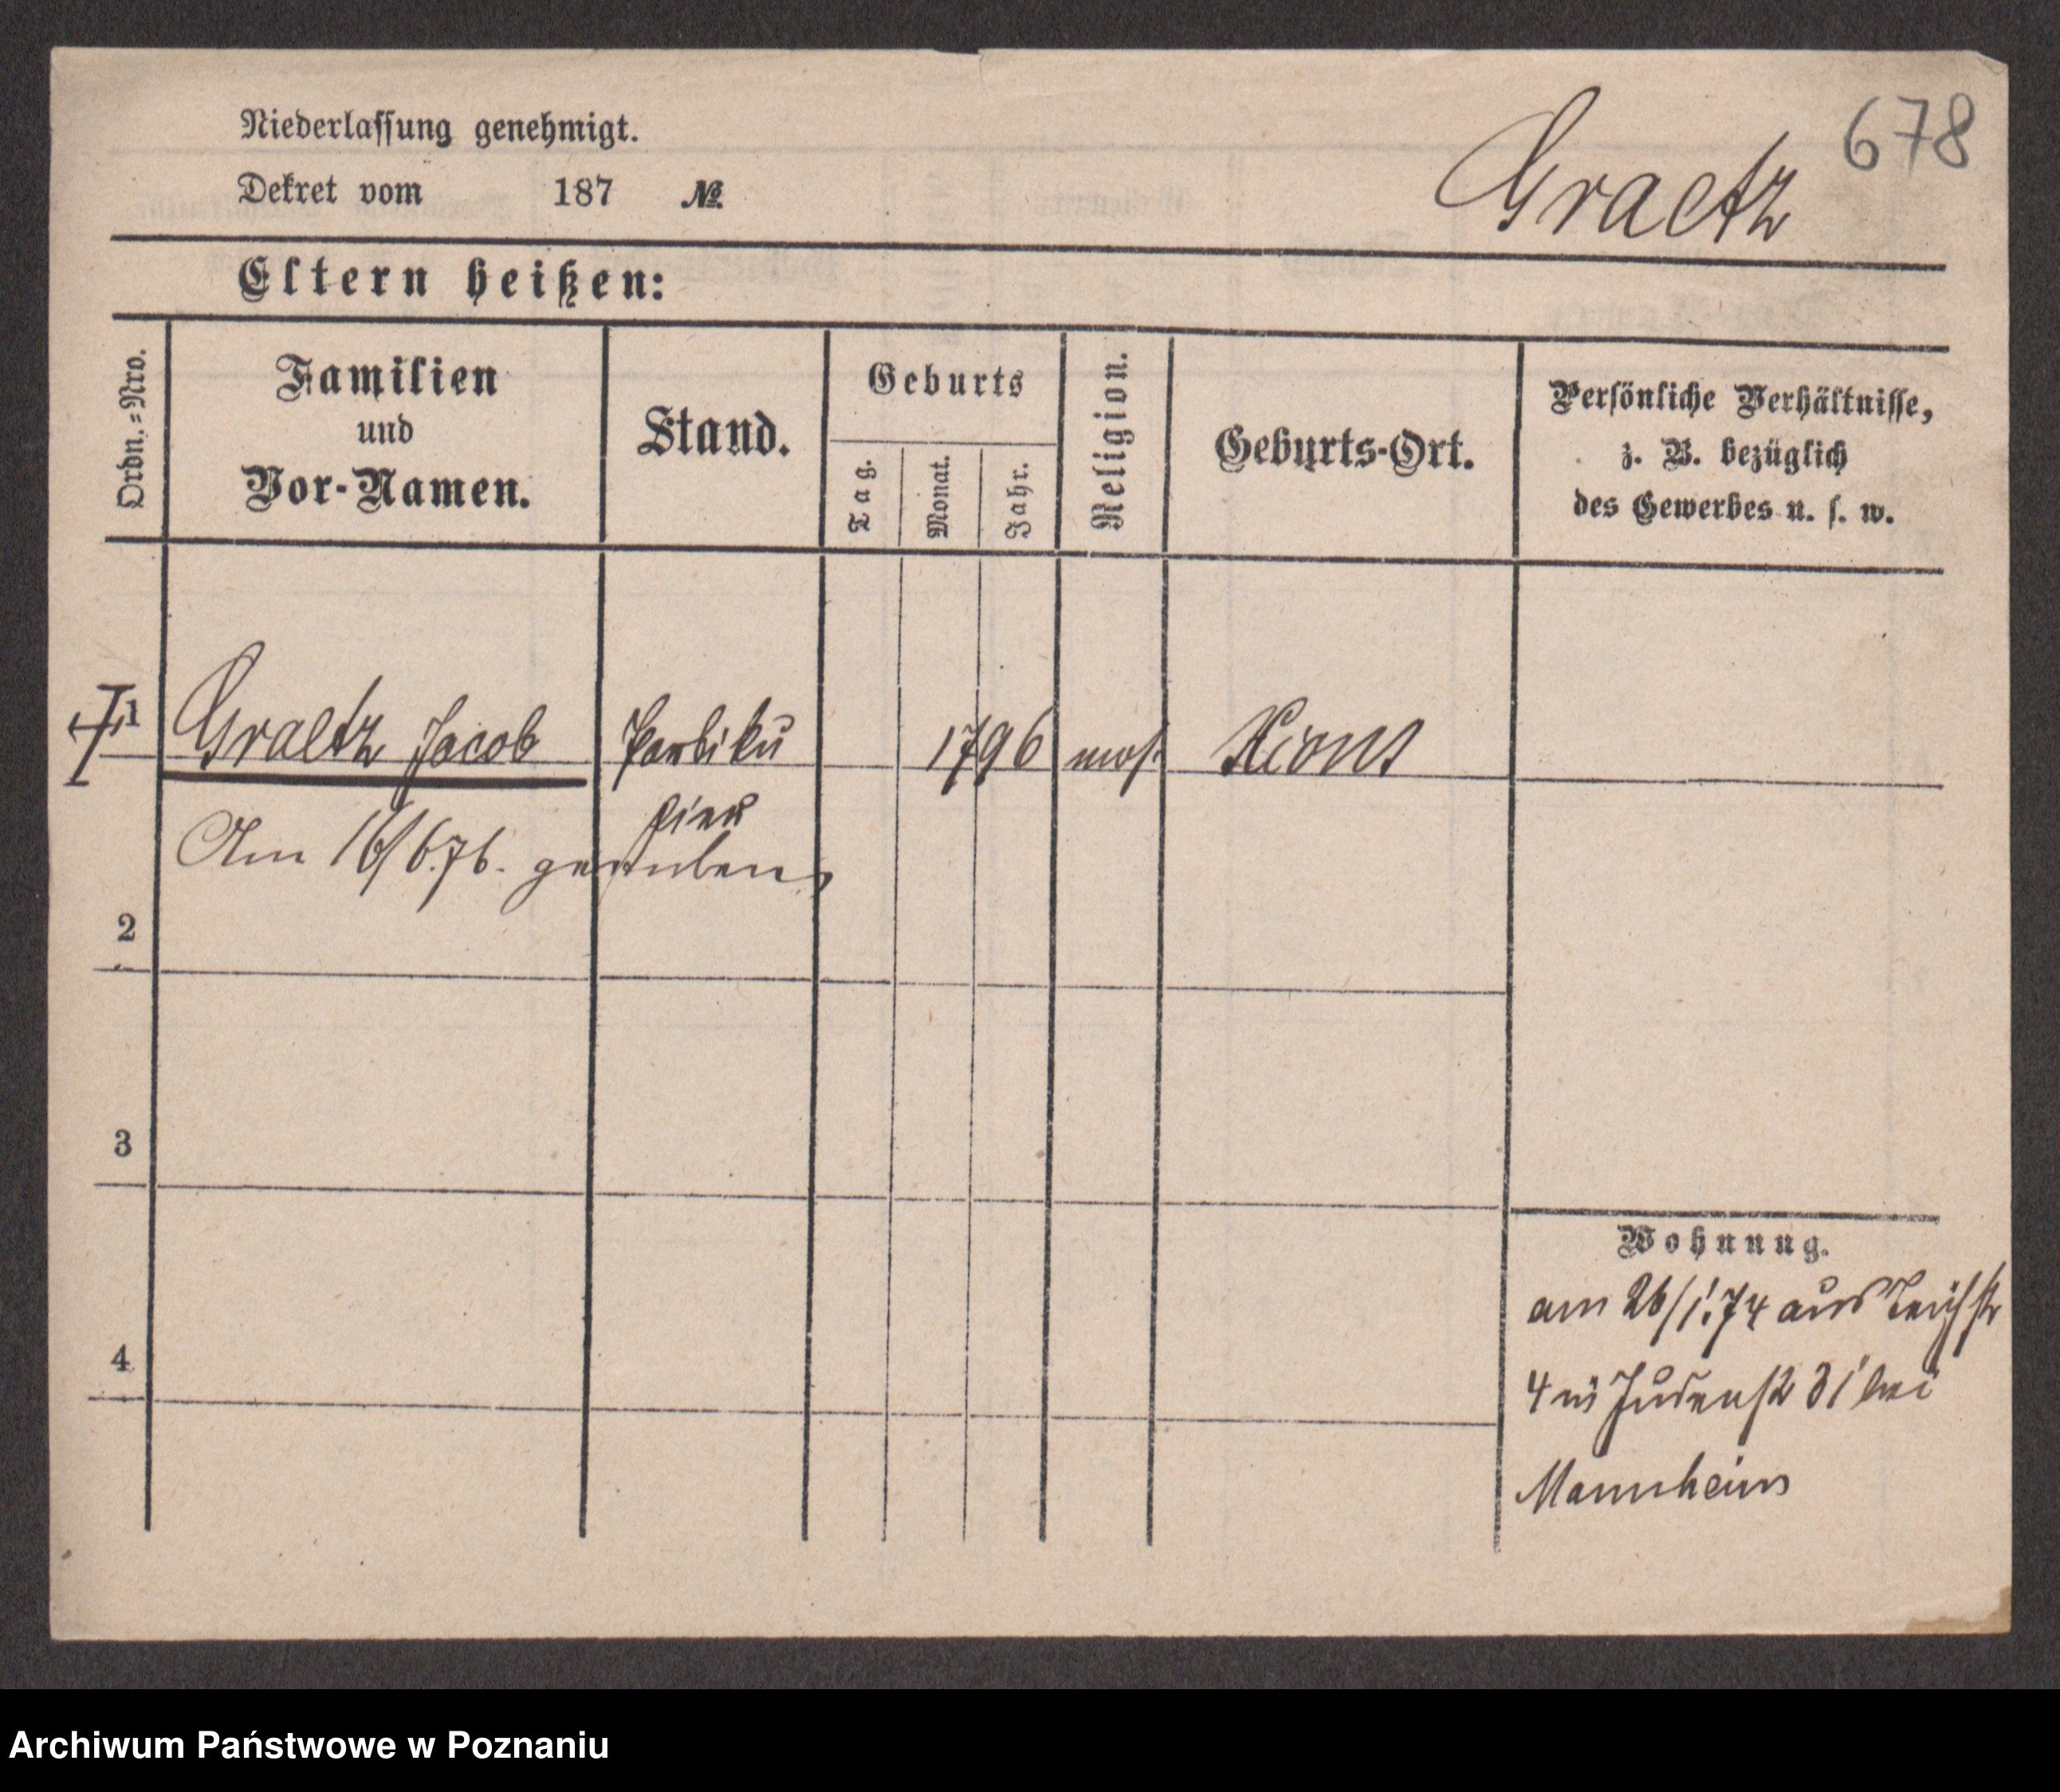 678
Niederlassung genehmigt.
Dekret vom 187 №.
Graetz
Eltern heißen:
Ordn.=Nro.
Familien
und
Vor-Namen.
Stand.
Geburts
Tag.
Monat.
Jahr.
Religion.
Geburts-Ort.
Persönliche Verhältnisse,
z. B. bezüglich
des Gewerbes u. s. w.
1 Graetz Jacob Partiku 1796 mos. Xions
lier
Am 16/6.76. gestorben
2
3
4
Wohnung.
am 26/1.74 aus Teichstr
4 in Judenstr 31 bei
Mannheim
Archiwum Państwowe w Poznaniu